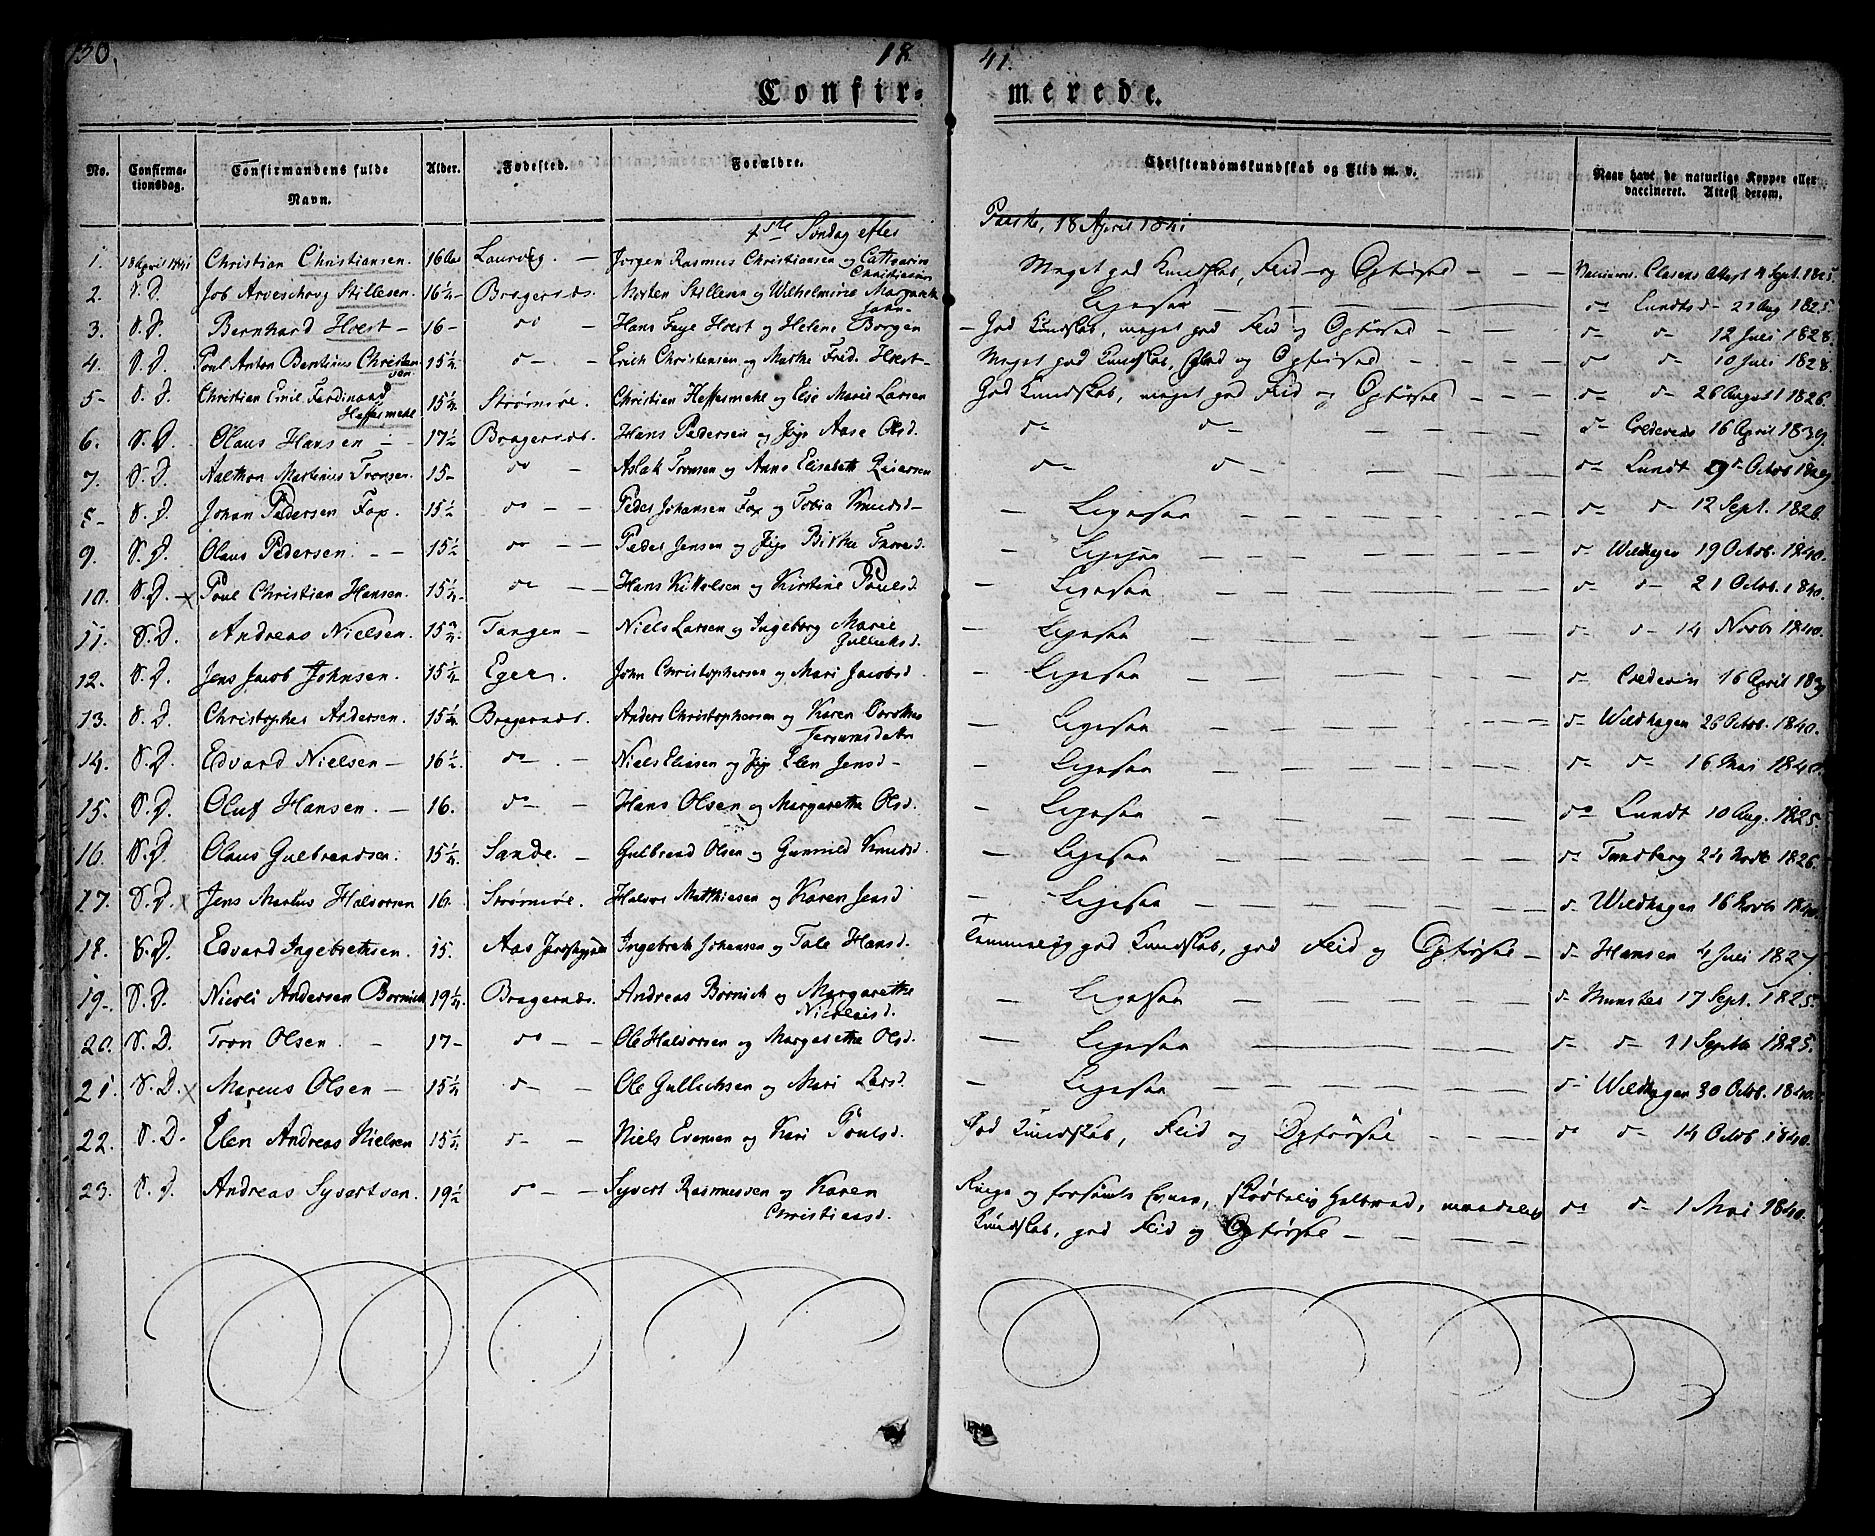 130. 18 41.
Confirmerede.
No. Confirmationsdag. Confirmandens fulde Navn. Alder. Fødested. Forældre. Christendomskundskab og Flid m. v. Naar havt de naturlige Kopper eller vaccineret. Attest derom.
1ste Søndag efter Paaske, 18 April 1841
1. 18 April 1841 Christian Christiansen. 16 Laurvig. — Jørgen Rasmus Christiansen og Cathrarin Christiansen Meget god Kundskab, Flid og Opførsel — Vaccineret. Clasens Attest 4 Sept. 1825.
2. S. D. Job Stillesen. 16¼ Bragernæs. Morten Stillesen og Wilhelmine Margrethe Ligesaa do Lundts do 21 Aug 1825.
3. S. D. Bernhard Hoest — 16 — do — Hans Faye Hoest og Helene Borgen — God Kundskab, meget god Flid og Opførsel do do 12 Juli 1828.
4. S. D. Poul Anton Berntinus Christensen 15¼ do — Erich Christensen og Marthe Fred. Hoest — Meget god Kundskab, Flid og Opførsel do do 10 Juli 1828.
5 S. D. Christian Emil Ferdinand Haffesmehl 15¼ Strømsøe. Christian Heffesmehl og Else Marie Larsen God Kundskab, meget god Flid og Opførsel do do 26 August 1826.
6. S. D. Olaus Hansen — 17½ Bragernæs. Hans Pedersen og Aase Olsd. do do do Credevens 16 April 1839.
7. S. D. Martinus Tronsen. 15 — do — Aslak Tronsen og Anne Elisabeth Reiersen do do do Lundt Octob 1829
8 — S. D. Johan Pedersen Fox. 15½ do — Peder Johansen Fox og Tobia Knudsd — Ligesaa do do 12 Sept. 1826.
9. S. D. Olaus Pedersen. — 15½ do — Peder Jensen og Birthe Thored. — Ligesaa do Wildhagen 19 Octob. 1840.
10. S. D. × Poul Christian Hansen. 15¼ do — Hans Kittelsen og Kirstine Poulsd. — Ligesaa do do 21 Octob. 1840.
11. S. D. Andreas Nielsen. 15 Tangen — Niels Larsen og Ingeborg Marie Gullichsd. — Ligesaa do do 14 Novbr 1840.
12. S. D. Jens Jacob Johnsen. 15¼ Eger. John Christophersen og Mari Jacobsd. — Ligesaa do Credevin 16 April 1839
13. S. D. Christopher Andersen. 15¼ Bragernæs. Anders Christophersen og Karen Dorothea — Ligesaa do Wildhagen 26 Octob. 1840.
14. S. D. Edvard Nielsen — 16½ do — Niels Eliesen og Elen Jensd — Ligesaa do do 16 Mai 1840.
15. S. D. Oluf Hansen. — 16. do — Hans Olsen og Margarethe Olsd. — Ligesaa do Lundt 10 Aug. 1825.
16 S. D. Olaus Gulbrandsen. 15¼ Sande. — Gulbrand Olsen og Gunnild Knudsd. — Ligesaa do Tandberg 24 Novbr 1826.
17. S. D. × Jens Marius Halvorsen 16. Strømsøe. Halvor Matthiesen og Karen Jensd — Ligesaa do Wildhagen 16 Novbr 1840.
18. S. D. Edvard Ingebrethsen. 15. Aas Ingebreth Johansen og Tale Hansd. Temmelig god Kundskab, god Flid og Opførsel — do Hansen 4 Juli 1827.
19 — S. D. Nicoli Andersen Bornich 19¼ Bragernæs. Andreas Bornich og Margarethe Nicolaisd. — Ligesaa do Munster 17 Sept. 1825.
20. S. D. Tron Olsen. — 17 — do — Ole Halvorsen og Margarethe Olsd. — Ligesaa do do 11 Septbr 1825.
21. S. D. × Marcus Olsen — 15¼ do — Ole Gullichsen og Mari Larsd. — Ligesaa do Wildhagen 30 Octob. 1840.
22. S. D. Elen Andreas Nielsen 15½ do — Niels Evensen og Kari Poulsd. God Kundskab, Flid og Opførsel do do 14 Octob. 1840.
23. S. D. Andreas Syvertsen. 19½ do — Syvert Rasmussen og Karen Christiansd. Ringe og forsømte Evner, maadelig
Kundskab, god Flid og Opførsel — do do 1 Mai 1840.